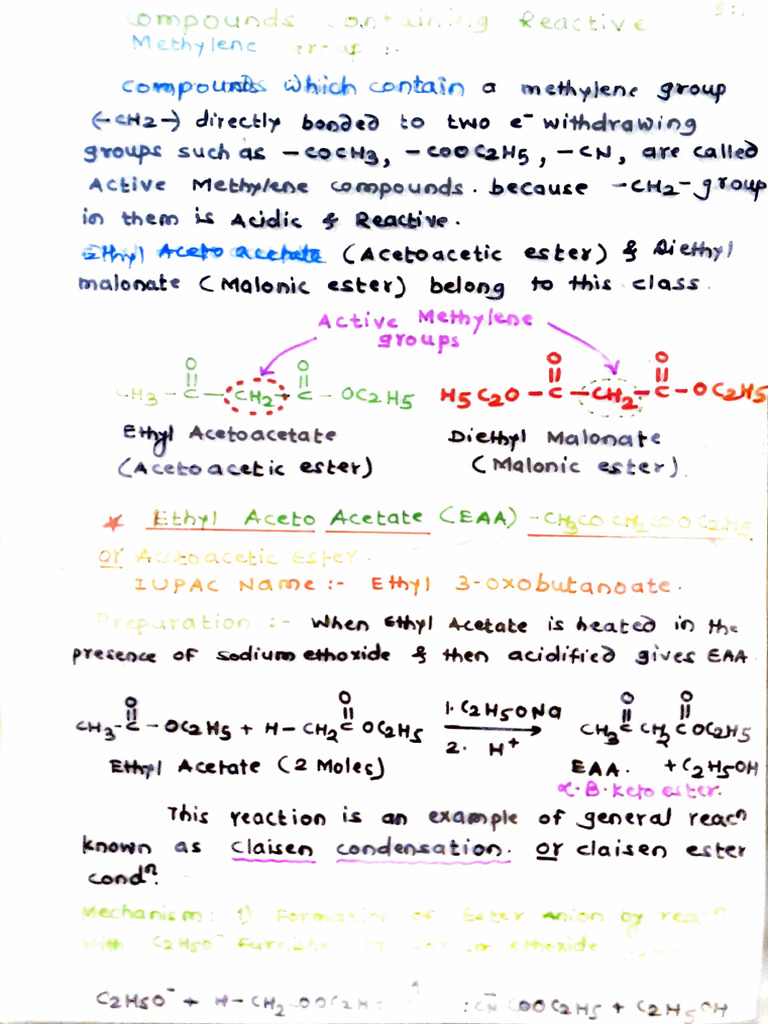 Compounds Containing Reactive
Methylene group :-
compounds which contain a methylene group
(-CH2-) directly bonded to two e⁻ withdrawing
groups such as -COCH3, -COOC2H5, -CN, are called
Active Methylene compounds. because -CH2- group
in them is Acidic & Reactive.
Ethyl Aceto acetate (Acetoacetic ester) & Diethyl
malonate (Malonic ester) belong to this class.
Active Methylene
groups
O O O O
CH3 - C - CH2 - C - OC2H5 H5C2O - C - CH2 - C - OC2H5
Ethyl Acetoacetate Diethyl Malonate
(Acetoacetic ester) (Malonic ester)
* Ethyl Aceto Acetate (EAA) - CH3COCH2COOC2H5
or Acetoacetic Ester.
IUPAC Name :- Ethyl 3-oxobutanoate.
Preparation :- When Ethyl Acetate is heated in the
presence of sodium ethoxide & then acidified gives EAA
O O 1. C2H5ONa O O
CH3-C-OC2H5 + H-CH2C OC2H5 → CH3C CH2C OC2H5
2. H⁺
Ethyl Acetate (2 Moles) EAA. + C2H5OH
α.B.keto ester.
This reaction is an example of general reacⁿ
known as claisen condensation. or claisen ester
condⁿ.
Mechanism: 1) Formation of Ester Anion by reacⁿ
with C2H5O⁻ ethoxide
C2H5O⁻ + H-CH2 COOC2H5 COOC2H5 + C2H5OH